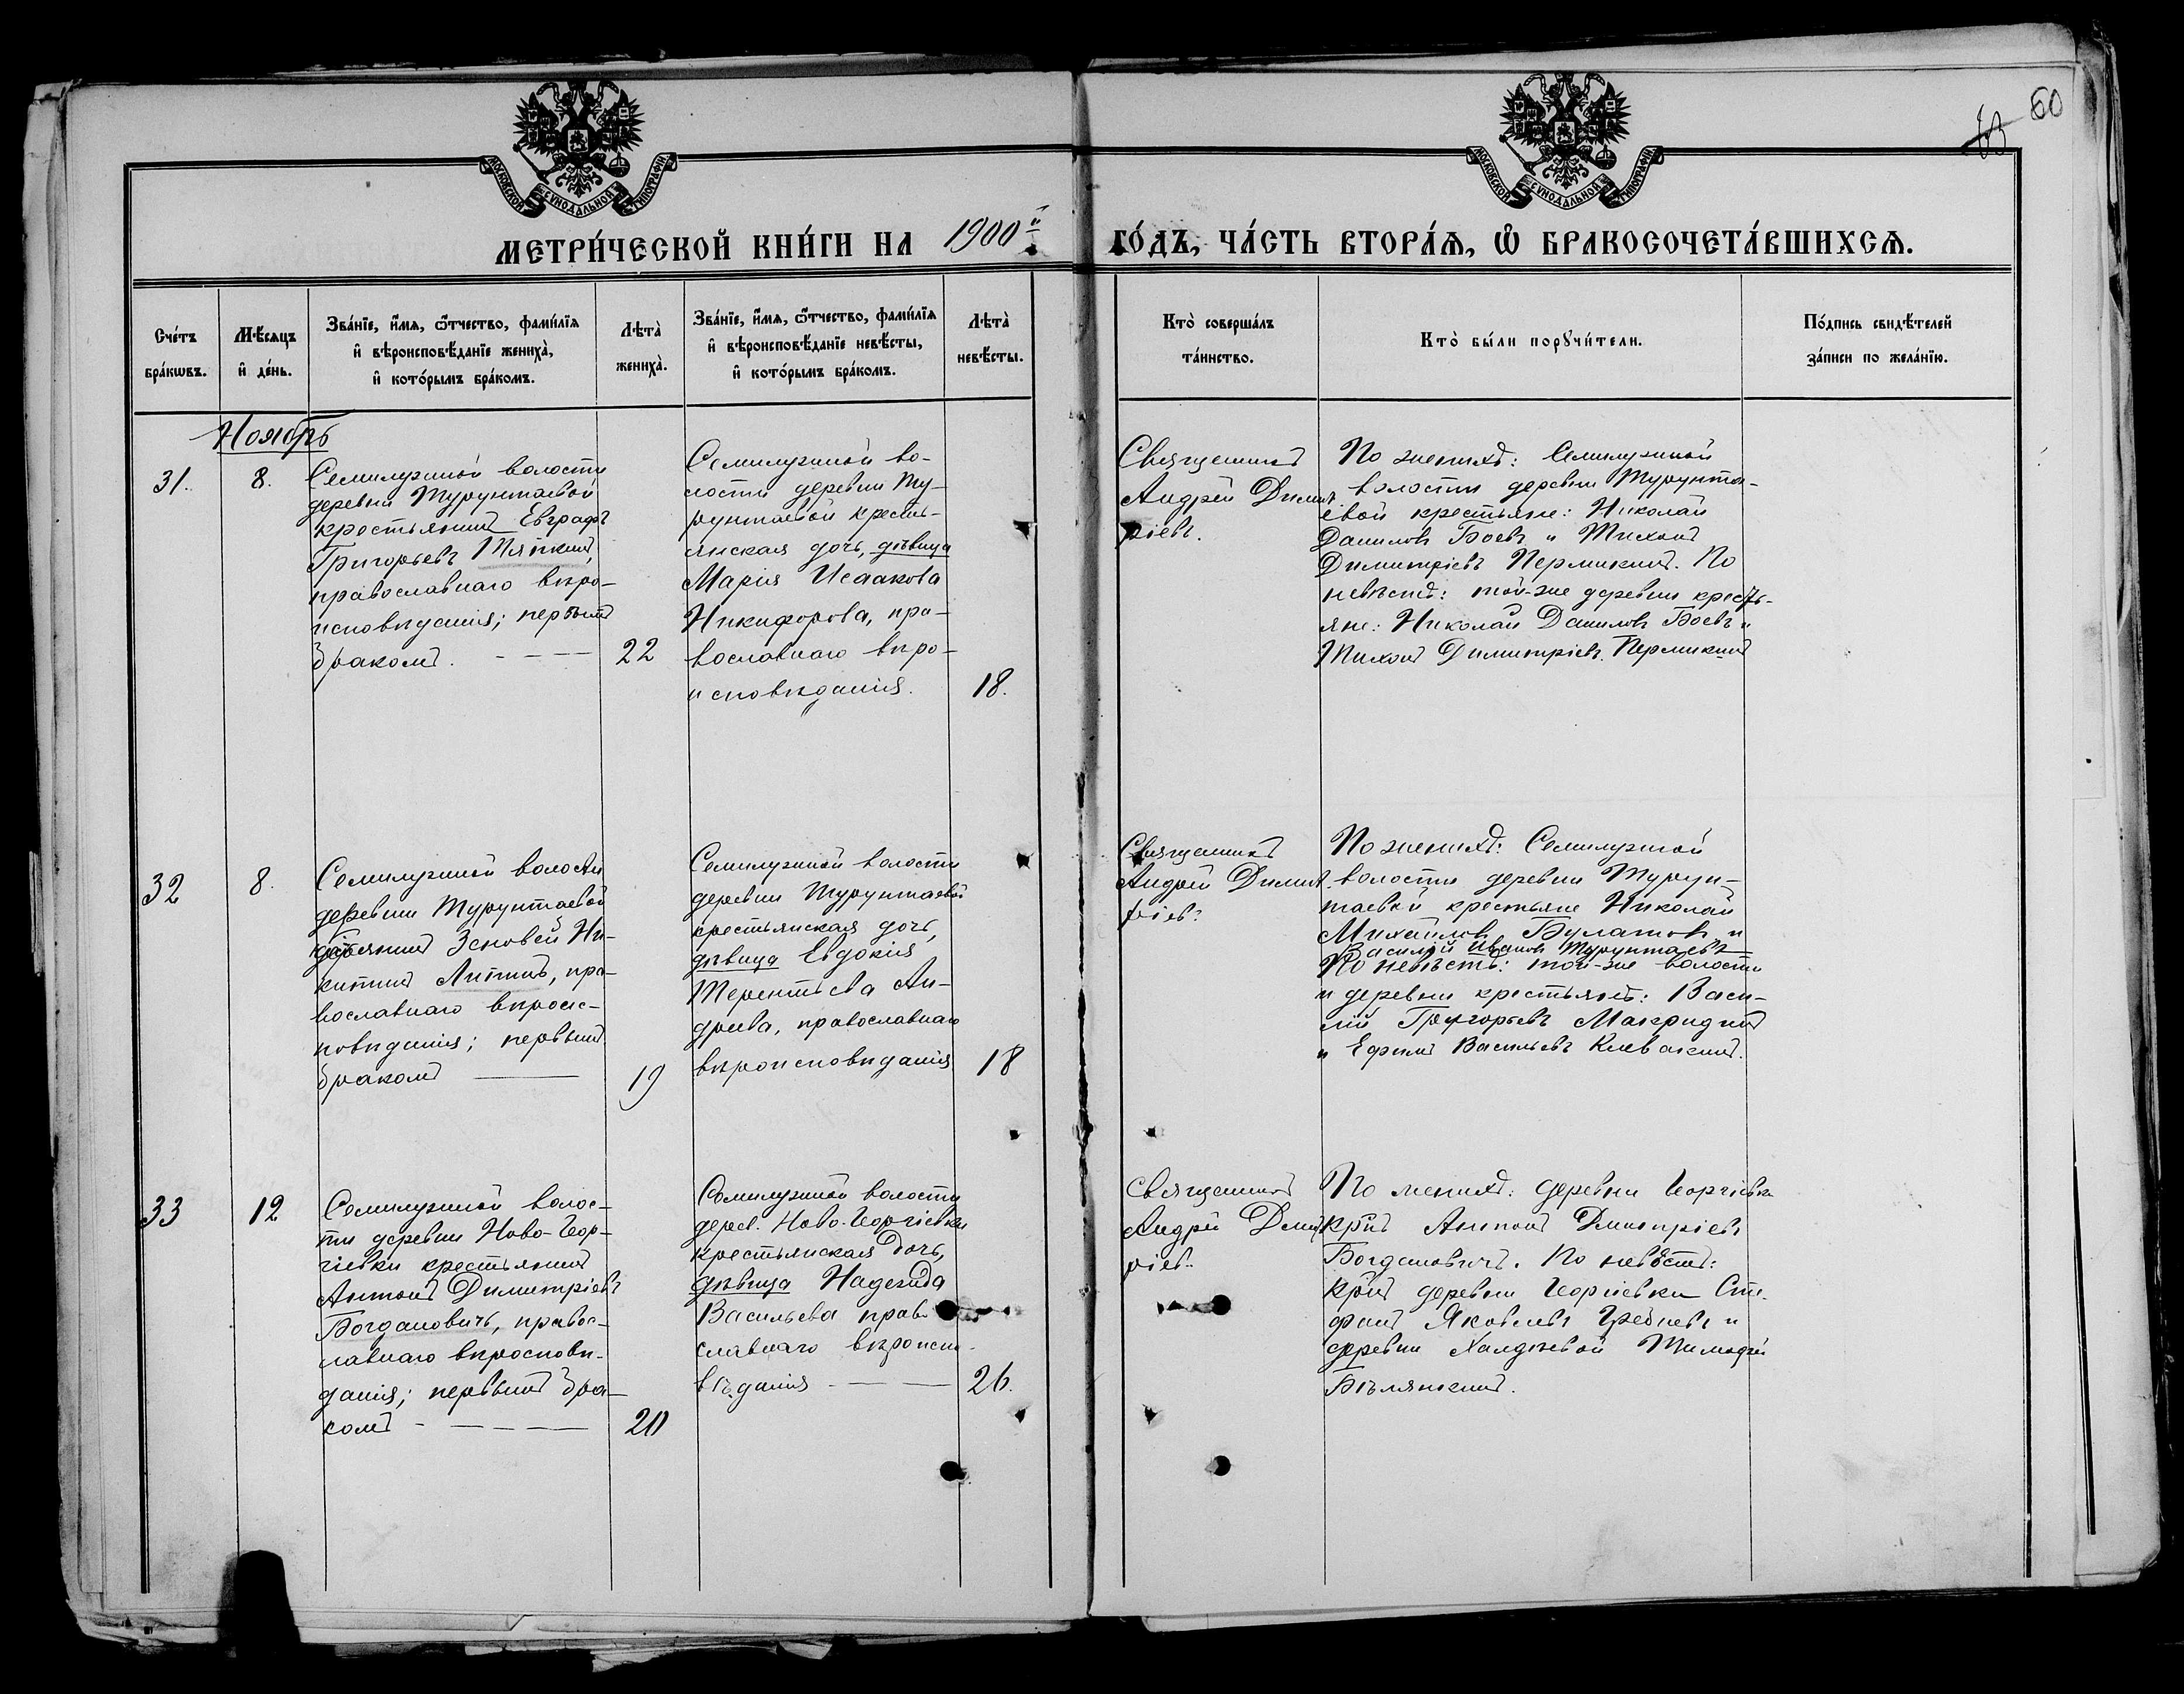 60
63
МОСКОВСКОЙ СѴНОДАЛЬНОЙ ТИПОГРАФІИ
МОСКОВСКОЙ СѴНОДАЛЬНОЙ ТИПОГРАФІИ
МЕТРИ́ЧЕСКОЙ КНИ́ГИ НА 1900й ГО́ДЪ, ЧА́СТЬ ВТОРА́Ѧ, Ѽ БРАКОСОЧЕТА́ВШИХСѦ.
Сче́тъ
бра́кωвъ.
Мѣ́сяцъ
и҆ де́нь.
Зва́нїе, и҆́мѧ, ѻ҆́тчество, фами́лїѧ
и҆ вѣроисповѣ́данїе жениха̀,
и҆ кото́рымъ бра́комъ.
Лѣта̀
жениха̀.
Зва́нїе, и҆́мѧ, ѻ҆́тчество, фами́лїѧ
и҆ вѣроисповѣ́данїе невѣ́сты,
и҆ кото́рымъ бра́комъ.
Лѣта̀
невѣ́сты.
Кто̀ соверша́лъ
та́инство.
Кто̀ бы́ли порꙋчи́тели.
По́дпись свидѣ́телей
за́писи по жела́нїю.
Ноябрь
31.
8.
Семилужной волости
деревни Турунтаевой
крестьянинъ Евграфъ
Григорьевъ Тяпкинъ,
православнаго вѣро-
исповѣданія; первымъ
бракомъ. - - - -
22
Семилужной во-
лости деревни Ту-
рунтаевой кресть-
янская дочь, дѣвица
Марія Исаакова
Никифорова, пра-
вославнаго вѣро-
исповѣданія.
18.
Священникъ
Андрей Димит
ріевъ.
По женихѣ: Семилужной
волости деревни Турунта-
евой крестьяне: Николай
Даниловъ Боевъ и Тихонъ
Димитріевъ Пермикинъ. По
невѣстѣ: той-же деревни кресть-
яне: Николай Даниловъ Боевъ и
Тихонъ Димитріевъ Пермикинъ
32
8.
Семилужной волости
деревни Турунтаевой
крестьянинъ Зеновей Ни-
китинъ Липинъ, пра-
вославнаго вѣроис-
повѣданія; первымъ
бракомъ ———
19
Семилужной волости
деревни Турунтаевой
крестьянская дочь,
дѣвица Евдокія
Терентьева Ан-
дреева, православнаго
вѣроисповѣданія
18
Священникъ
Андрей Димит
ріевъ
По женихѣ: Семилужной
волости деревни Турун-
таевой крестьяне Николай
Михайловъ Булатовъ и
Василій Ивановъ Турунтаевъ
По невѣстѣ: той-же волости
и деревни крестьяне: Васи-
лій Григорьевъ Макридинъ
и Ефимъ Васильевъ
33
12
Семилужной волос-
ти деревни Ново-Геор-
гіевки крестьянинъ
Антонъ Димитріевъ
Богдановичъ, правос-
лавнаго вѣросповѣ-
данія; первымъ бра-
комъ - — — — —
20
Семилужной волости
дерев. Ново-Георгіевки
крестьянская дочь,
дѣвица Надежда
Васильева право
славнаго вѣроиспо-
вѣданія - — — —
26.
Священникъ
Андрей Димит
ріевъ
По женихѣ: деревни Георгіевки
кр̃нъ Антонъ Дмитріевъ
Богдановичъ. По невѣстѣ:
кр̃нъ деревни Георгіевки Сте-
фанъ Яковлевъ Гребневъ и
деревни Халдѣевой Тимофей